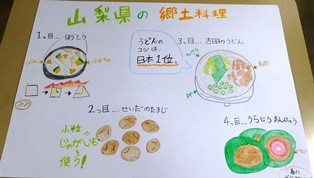 山梨県の郷土料理
1つ目…ほうとう
うどんの
コシは、
日本1位。
3つ目…吉田のうどん
2つ目…せいだのたまじ
小粒
のじゃがいもを
使う!
4つ目…うらじろまんじゅう